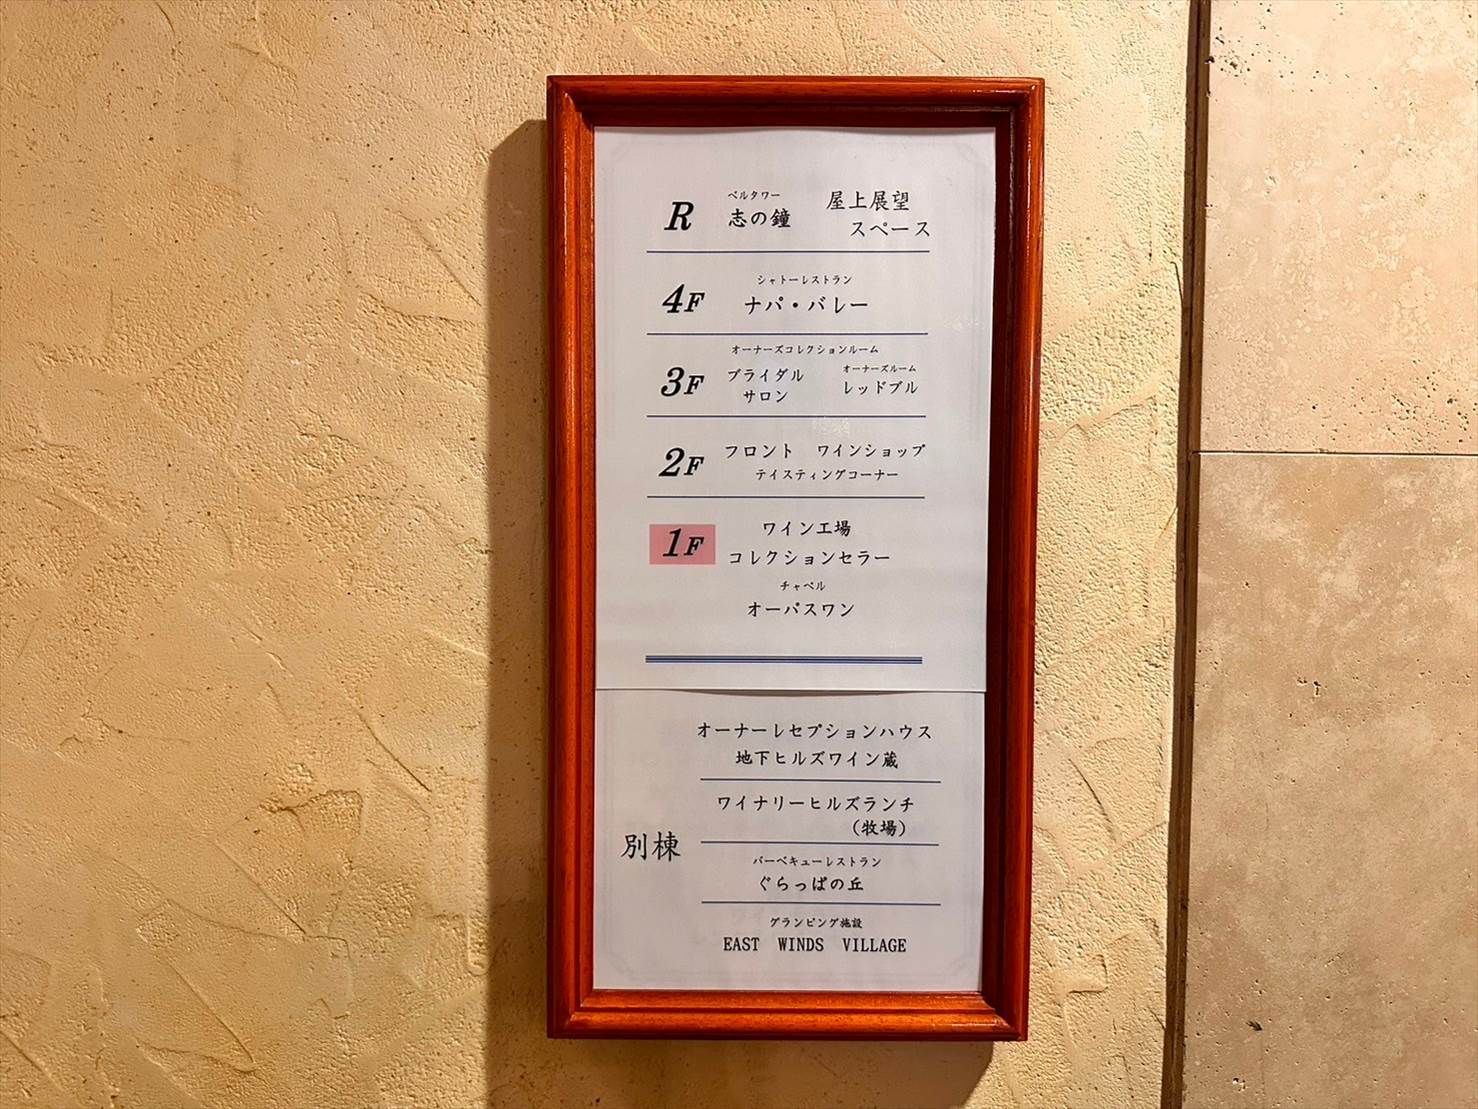 R
ベルタワー
志の鐘
屋上展望
スペース
4F
シャトーレストラン
ナパ・バレー
3F
オーナーズコレクションルーム
ブライダル
サロン
オーナーズルーム
レッドブル
2F
フロント ワインショップ
テイスティングコーナー
1F
ワイン工場
コレクションセラー
チャペル
オーパスワン
別棟
オーナーレセプションハウス
地下ヒルズワイン蔵
ワイナリーヒルズランチ
(牧場)
バーベキューレストラン
ぐらっぱの丘
グランピング施設
EAST WINDS VILLAGE